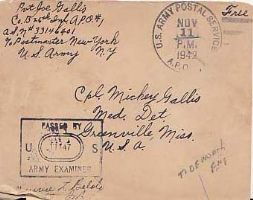 Pvt Joe Gallis
A.S.N° 33146601
To Postmaster New-York
U.S. Army N.Y
U.S. ARMY POSTAL SERVICE
NOV
11
P.M.
1942
A.P.O.
Free
Cpl. Mickey Gallis
Med. Det.
Greenville Miss.
U.S.A
PASSED BY
U S
ARMY EXAMINER